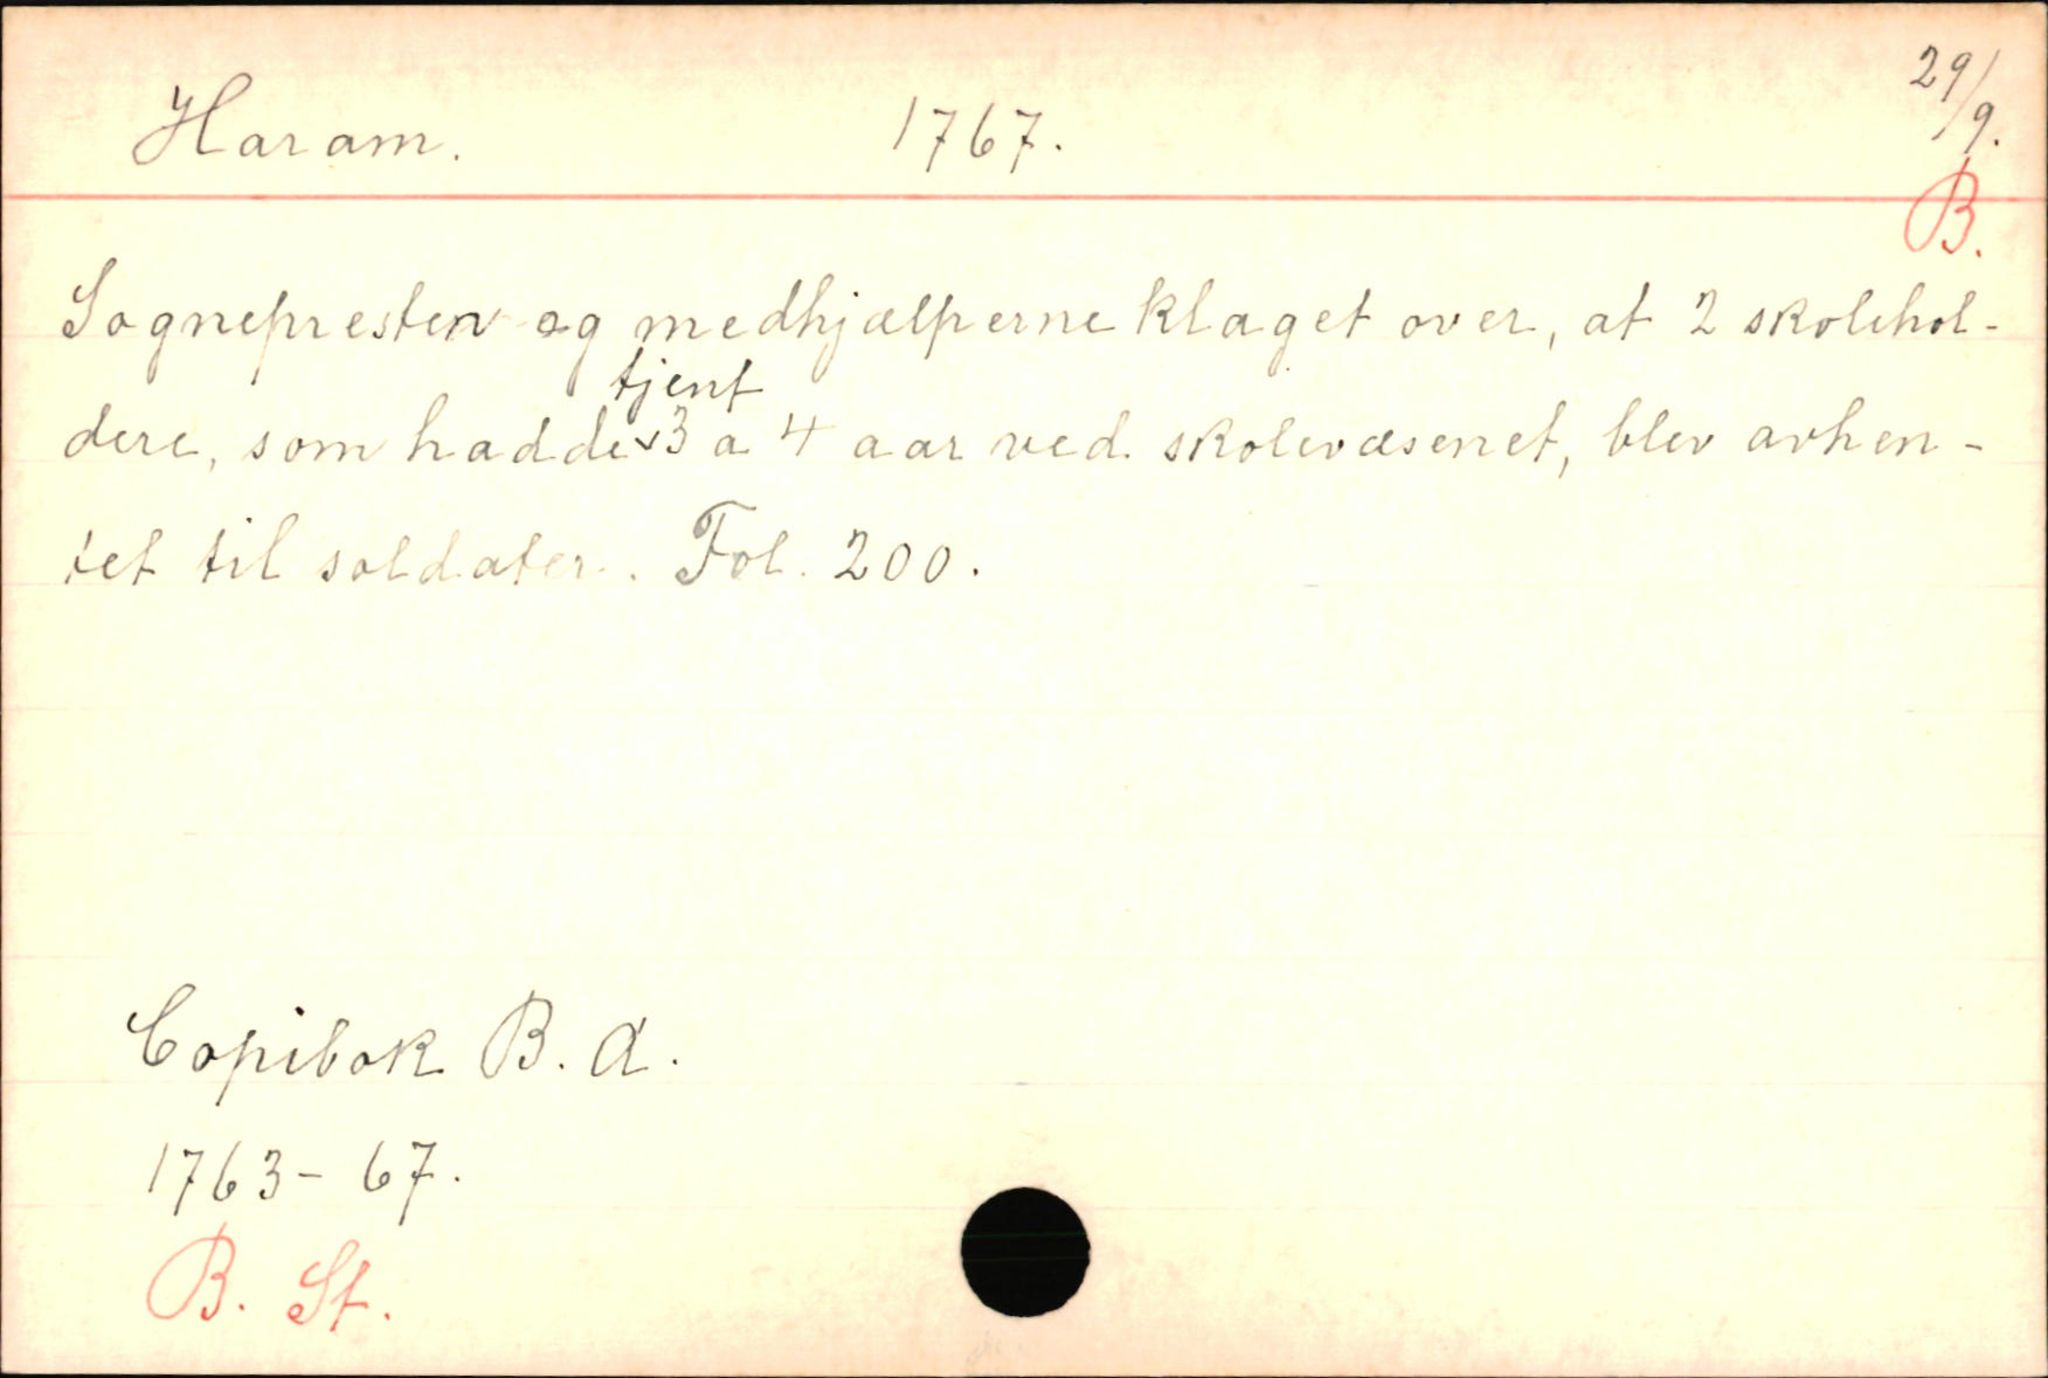 Haram. 1767. 29/9.
B.
Sognepresten og medhjælperne klaget over, at 2 skolehol-
tjent
dere, som hadde ˅ 3 a 4 aar ved skolevæsenet, blev avhen-
tet til soldater. Fol. 200.
Copibok B. A.
1763-67.
B. St.